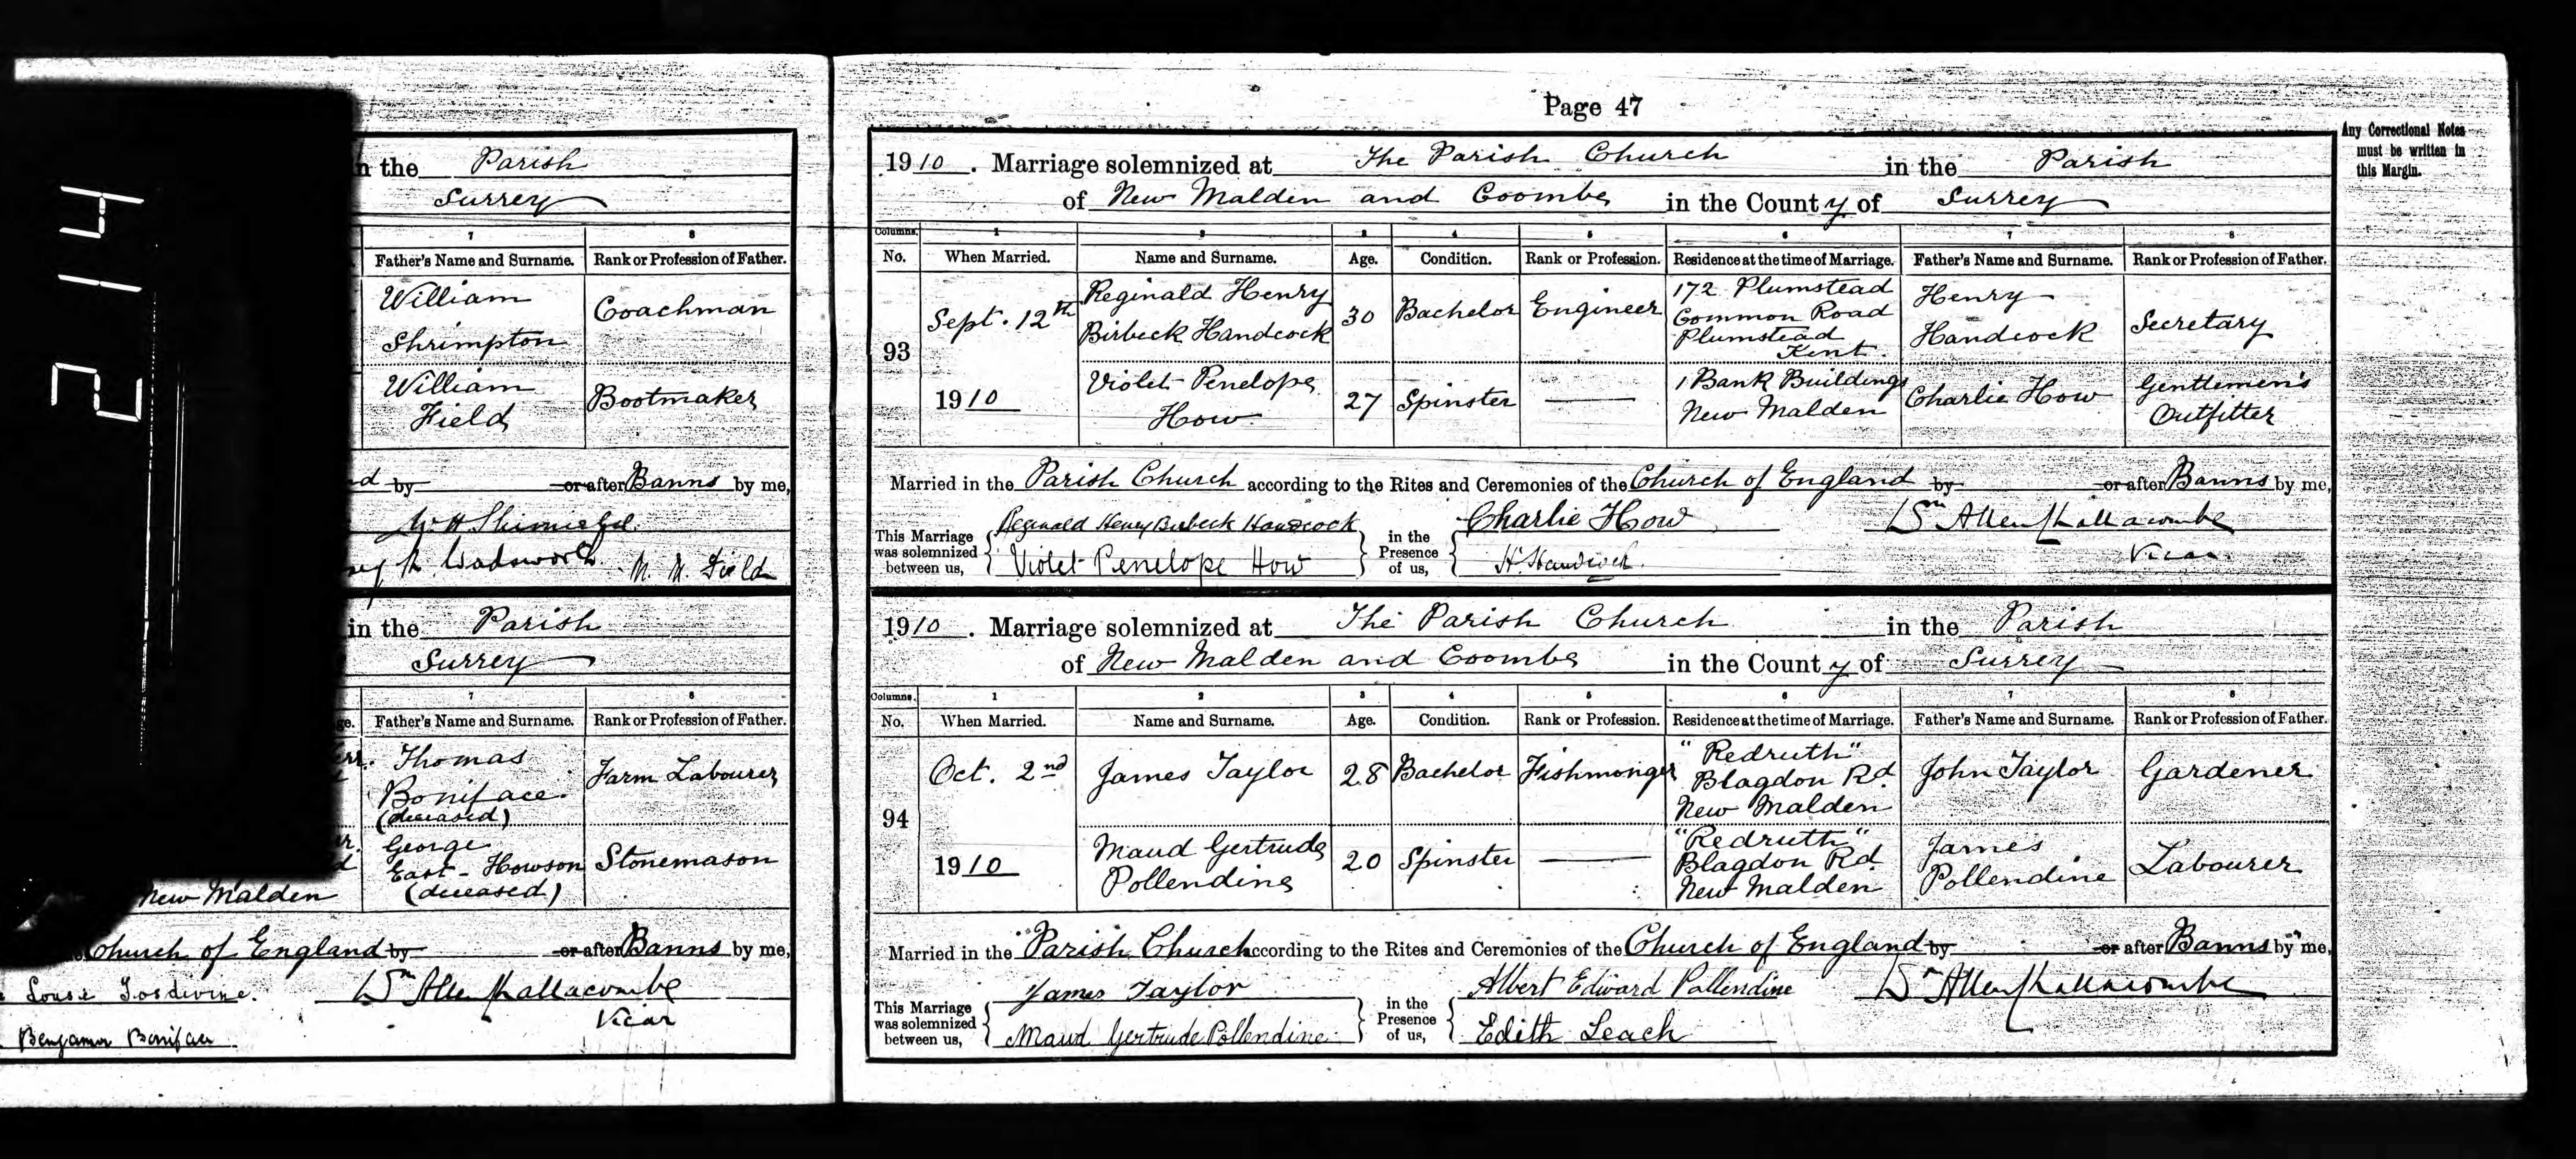 214
n the Parish
Surrey
7 8
Father's Name and Surname. Rank or Profession of Father.
William
Shrimpton
Coachman
William
Field
Bootmaker
d by or after Banns by me,
Wadsworth M. M. Field
in the Parish
Surrey
7 8
ge. Father's Name and Surname. Rank or Profession of Father.
Thomas
Boniface
(deceased)
Farm Labourer
George
East - Howson
(deceased)
Stonemason
New Malden
Church of England by or after Banns by me,
Wm Allen Challacombe
Vicar
Benjamin Boniface
Page 47
Any Correctional Notes
must be written in
this Margin.
1910. Marriage solemnized at The Parish Church in the Parish
of New Malden and Coombe in the County of Surrey
Columns. 1 2 3 4 5 6 7 8
No. When Married. Name and Surname. Age. Condition. Rank or Profession. Residence at the time of Marriage. Father's Name and Surname. Rank or Profession of Father.
93
Sept. 12th
1910
Reginald Henry
Birbeck Handcock
30
Bachelor
Engineer
172 Plumstead
Common Road
Plumstead
Kent.
Henry
Handcock
Secretary
Violet Penelope
How
27
Spinster
1 Bank Buildings
New Malden
Charlie How
Gentlemen's
Outfitter
Married in the Parish Church according to the Rites and Ceremonies of the Church of England by or after Banns by me,
This Marriage
was solemnized
between us,
Reginald Henry Birbeck Handcock
Violet Penelope How
in the
Presence
of us,
Charlie How
H. Handcock
Wm Allen Challacombe
Vicar
1910. Marriage solemnized at The Parish Church in the Parish
of New Malden and Coombe in the County of Surrey
Columns. 1 2 3 4 5 6 7 8
No. When Married. Name and Surname. Age. Condition. Rank or Profession. Residence at the time of Marriage. Father's Name and Surname. Rank or Profession of Father.
94
Oct. 2nd
1910
James Taylor
28
Bachelor
Fishmonger
"Redruth"
Blagdon Rd.
New Malden
John Taylor
Gardener
Maud Gertrude
Pollendine
20
Spinster
"Redruth"
Blagdon Rd
New Malden
James
Pollendine
Labourer
Married in the Parish Church according to the Rites and Ceremonies of the Church of England by or after Banns by me,
This Marriage
was solemnized
between us,
James Taylor
Maud Gertrude Pollendine
in the
Presence
of us,
Albert Edward Pollendine
Edith Leach
Wm Allen Challacombe